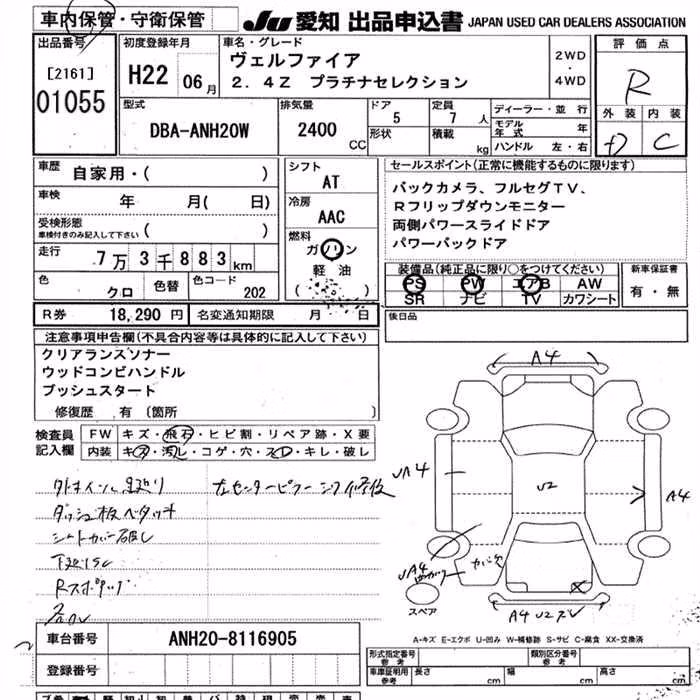 車内保管・守衛保管
JU 愛知 出品申込書 JAPAN USED CAR DEALERS ASSOCIATION
出品番号
[2161]
01055
初度登録年月
H22 06月
車名・グレード
ヴェルファイア
2.4Z プラチナセレクション
2WD
・
4WD
評価点
R
外装 内装
D C
型式
DBA-ANH20W
排気量
2400 CC
ドア
5
形状
定員
7 人
積載 kg
ディーラー・並行
モデル年式 年
ハンドル 左・右
車歴 自家用・( )
車検 年 月( 日)
受検形態
車検付きのみ記入して下さい ( )
走行 7万3千883km
色 クロ 色替 色コード 202
シフト
AT
冷房
AAC
燃料
ガソリン
軽油
( )
セールスポイント(正常に機能するものに限ります)
バックカメラ、フルセグTV、
Rフリップダウンモニター
両側パワースライドドア
パワーバックドア
装備品(純正品に限り○をつけてください)
PS PW エアB AW
SR ナビ TV カワシート
新車保証書
有・無
R券 18,290円 名変通知期限 月 日
後日品
注意事項申告欄(不具合内容等は具体的に記入して下さい)
クリアランスソナー
ウッドコンビハンドル
プッシュスタート
修復歴 有〔箇所 〕
検査員記入欄
FW キズ・飛石・ヒビ割・リペア跡・X要
内装 キズ・汚レ・コゲ・穴・スレ・キレ・破レ
左センターピラー
ダッシュ板ベタツキ
シートカバー破レ
A4
UA4
U2
A4
UA4
カバ欠
A4 U2
スペア
A-キズ E-エクボ U-凹み W-補修跡 S-サビ C-腐食 XX-交換済
車台番号 ANH20-8116905
登録番号
形式指定番号
参考
類別区分番号
参考
車庫証明用
参考
長さ cm 幅 cm 高さ cm